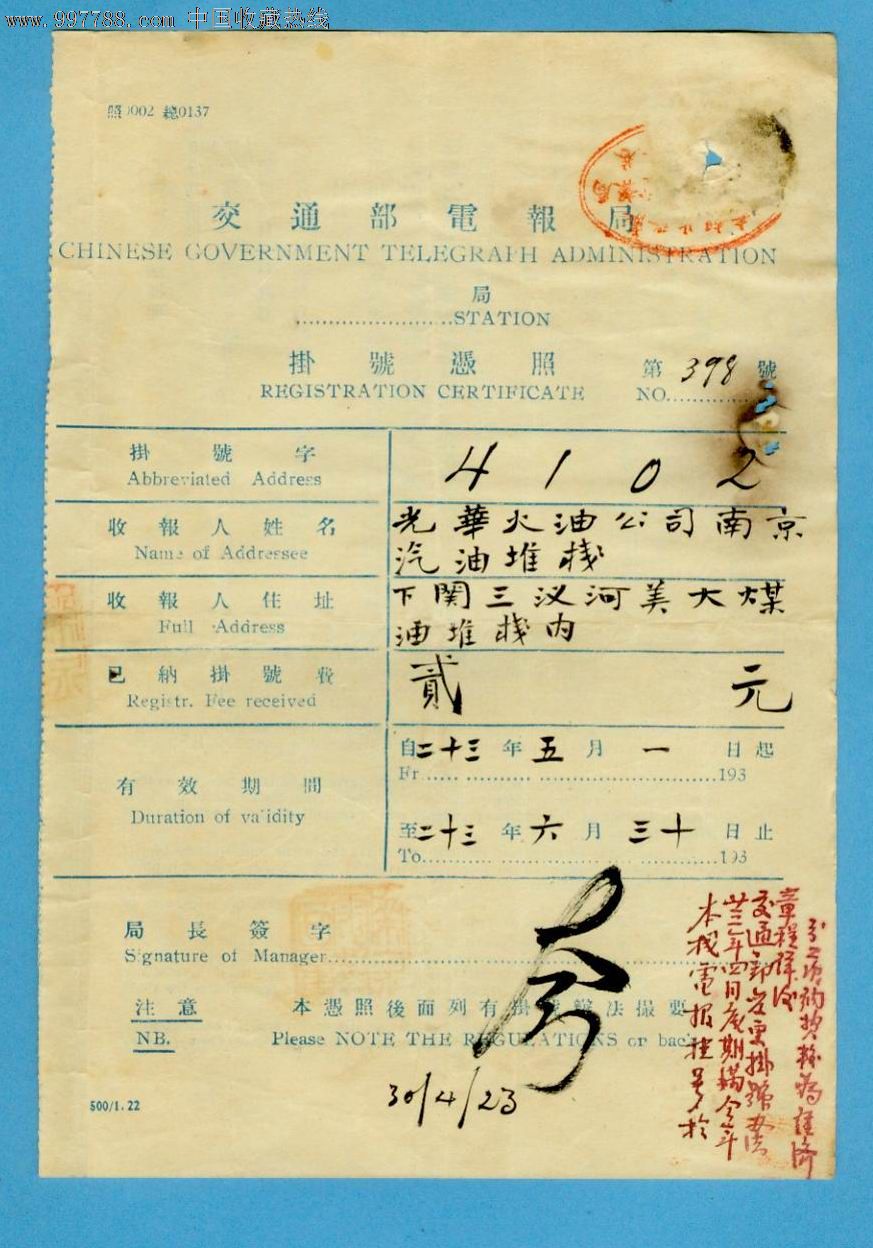 www.997788.com 中国收藏热线
照1002 總0137
交通部電報局
CHINESE GOVERNMENT TELEGRAPH ADMINISTRATION
局
STATION
掛號憑照
REGISTRATION CERTIFICATE
第398號
NO.
掛號字
Abbreviated Address
4102
收報人姓名
Name of Addressee
光華火油公司南京
汽油堆棧
收報人住址
Full Address
下関三汊河美大煤
油堆棧內
已納掛號費
Registr. Fee received
貳元
有效期間
Duration of validity
自二十三年五月一日起
Fr. 193
至二十三年六月三十日止
To 193
局長簽字
Signature of Manager
注意
NB.
本憑照後面列有掛號辦法撮要
Please NOTE THE REGULATIONS or back
30/4/23
500/1.22
本棧電报掛号於
廿三年四月底期滿今年
交通部变更掛號办法
章程